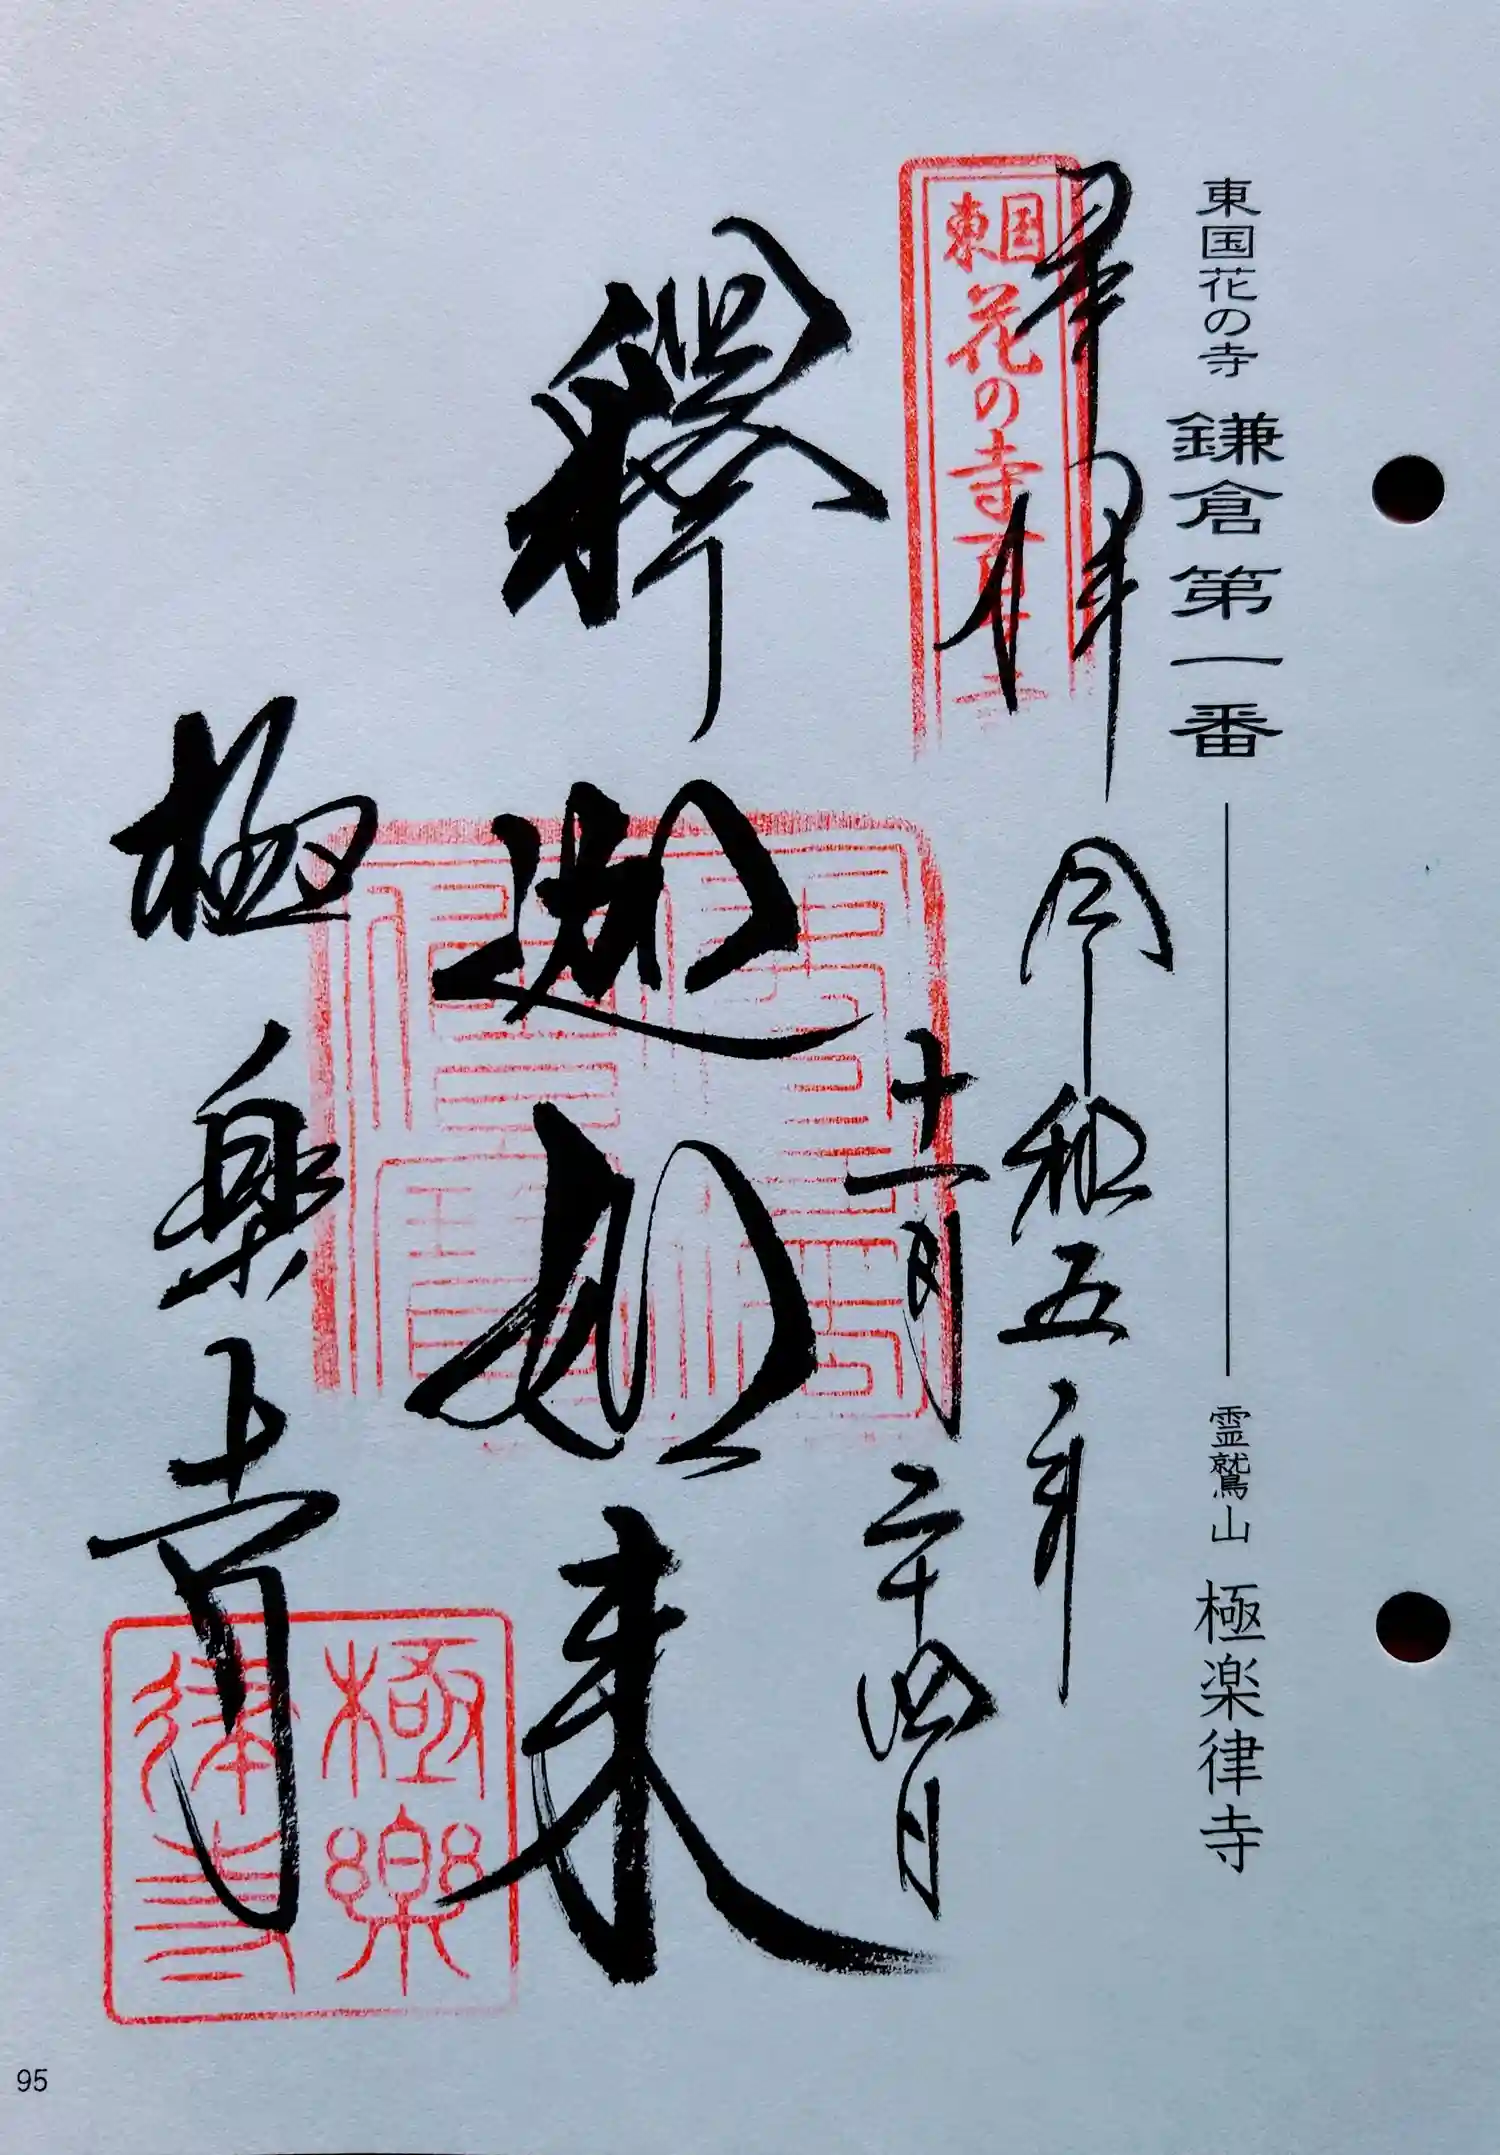 東国花の寺 鎌倉第一番 霊鷲山 極楽律寺
奉拝 令和五年
十一月二十四日
東国花の寺百
釋迦如来
極楽寺
極樂律寺
95